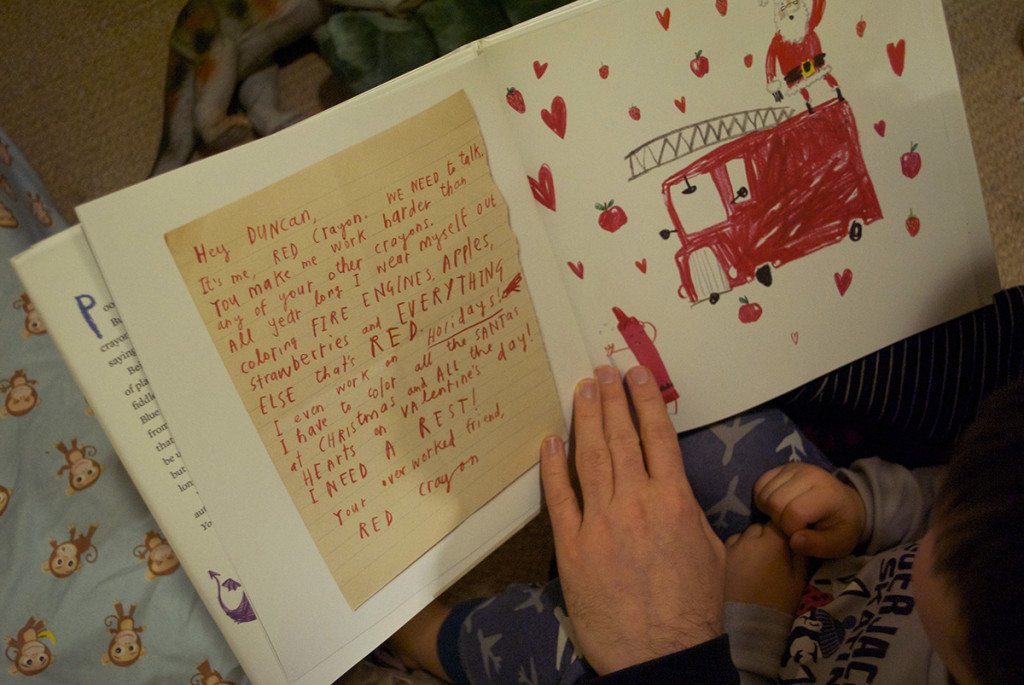 Hey DUNCAN,
It's me, RED Crayon. WE NEED to talk.
You make me work harder than
any of your other crayons.
All year long I wear myself out
coloring FIRE ENGINES, Apples,
strawberries and EVERYTHING
ELSE that's RED.
I even work on Holidays!
I have to color all the SANTAs
at CHRISTmas and ALL the
HEARTS on VAlentine's day!
I NEED A REST!
Your overworked friend,
RED crayon
P
crayon
saying
of pla
Blue
from
that
be u
but
Yo